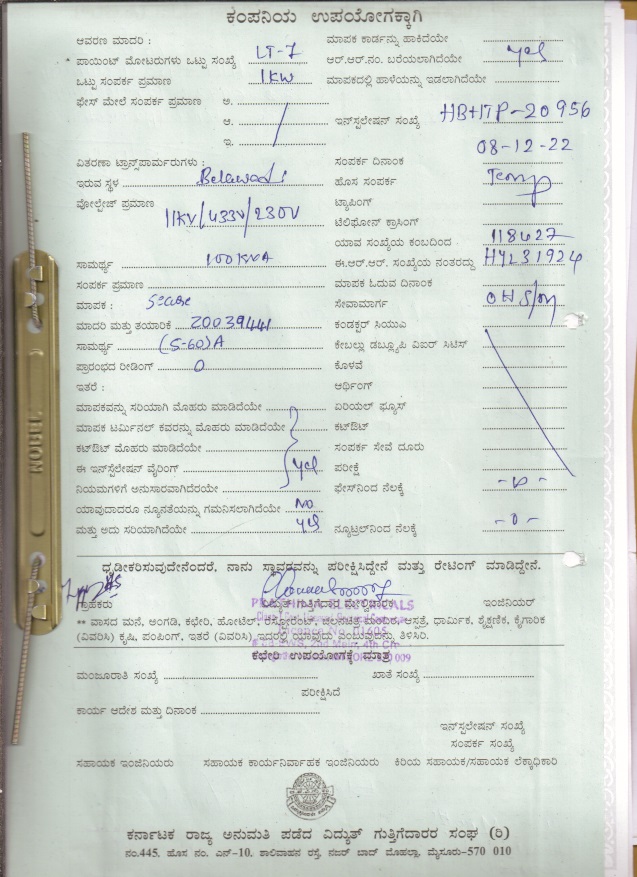 ಕಂಪನಿಯ ಉಪಯೋಗಕ್ಕಾಗಿ
ಆವರಣ ಮಾದರಿ :
* ಪಾಯಿಂಟ್ ಮೋಟರುಗಳು ಒಟ್ಟು ಸಂಖ್ಯೆ LT-7
ಒಟ್ಟು ಸಂಪರ್ಕ ಪ್ರಮಾಣ 1KW
ಫೇಸ್ ಮೇಲೆ ಸಂಪರ್ಕ ಪ್ರಮಾಣ ಅ.
ಆ.
ಇ.
ವಿತರಣಾ ಟ್ರಾನ್ಸ್‌ಫಾರ್ಮರುಗಳು :
ಇರುವ ಸ್ಥಳ Belawadi
ವೋಲ್ಟೇಜ್ ಪ್ರಮಾಣ 11KV/433V/230V
ಸಾಮರ್ಥ್ಯ 100KVA
ಸಂಪರ್ಕ ಪ್ರಮಾಣ
ಮಾಪಕ : Secure
ಮಾದರಿ ಮತ್ತು ತಯಾರಿಕೆ 20039441
ಸಾಮರ್ಥ್ಯ (5-60)A
ಪ್ರಾರಂಭದ ರೀಡಿಂಗ್ 0
ಇತರೆ :
ಮಾಪಕವನ್ನು ಸರಿಯಾಗಿ ಮೊಹರು ಮಾಡಿದೆಯೇ
ಮಾಪಕ ಟರ್ಮಿನಲ್ ಕವರನ್ನು ಮೊಹರು ಮಾಡಿದೆಯೇ
ಕಟ್‌ಔಟ್ ಮೊಹರು ಮಾಡಿದೆಯೇ
ಈ ಇನ್‌ಸ್ಟಲೇಷನ್ ವೈರಿಂಗ್ yes
ನಿಯಮಗಳಿಗೆ ಅನುಸಾರವಾಗಿದೆರಯೇ
ಯಾವುದಾದರೂ ನ್ಯೂನತೆಯನ್ನು ಗಮನಿಸಲಾಗಿದೆಯೇ No
ಮತ್ತು ಅದು ಸರಿಯಾಗಿದೆಯೇ yes
ಮಾಪಕ ಕಾರ್ಡನ್ನು ಹಾಕಿದೆಯೇ
ಆರ್.ಆರ್.ನಂ. ಬರೆಯಲಾಗಿದೆಯೇ yes
ಮಾಪಕದಲ್ಲಿ ಹಾಳೆಯನ್ನು ಇಡಲಾಗಿದೆಯೇ
ಇನ್‌ಸ್ಟಲೇಷನ್ ಸಂಖ್ಯೆ HBHTP-20956
ಸಂಪರ್ಕ ದಿನಾಂಕ 08-12-22
ಹೊಸ ಸಂಪರ್ಕ Temp
ಟ್ಯಾಪಿಂಗ್
ಟೆಲಿಫೋನ್ ಕ್ರಾಸಿಂಗ್
ಯಾವ ಸಂಖ್ಯೆಯ ಕಂಬದಿಂದ 118627
ಈ.ಆರ್.ಆರ್. ಸಂಖ್ಯೆಯ ನಂತರದ್ದು HYL31924
ಮಾಪಕ ಓದುವ ದಿನಾಂಕ
ಸೇವಾಮಾರ್ಗ OH
ಕಂಡಕ್ಟರ್ ಸಿಯುಎ
ಕೇಬಲ್ಲು ಡಬ್ಲ್ಯೂಪಿ ವಿಐರ್ ಸಿಟಿಸ್
ಕೊಳವೆ
ಆರ್ಥಿಂಗ್
ಏರಿಯಲ್ ಫ್ಯೂಸ್
ಕಟ್‌ಔಟ್
ಸಂಪರ್ಕ ಸೇವೆ ದೂರು
ಪರೀಕ್ಷೆ
ಫೇಸ್‌ನಿಂದ ನೆಲಕ್ಕೆ -0-
ನ್ಯೂಟ್ರಲ್‌ನಿಂದ ನೆಲಕ್ಕೆ -0-
ಧೃಡೀಕರಿಸುವುದೇನೆಂದರೆ, ನಾನು ಸ್ಥಾವರವನ್ನು ಪರೀಕ್ಷಿಸಿದ್ದೇನೆ ಮತ್ತು ರೇಟಿಂಗ್ ಮಾಡಿದ್ದೇನೆ.
ಗ್ರಾಹಕರು ವಿದ್ಯುತ್ ಗುತ್ತಿಗೆದಾರ ಮೇಲ್ವಿಚಾರಕ ಇಂಜಿನಿಯರ್
** ವಾಸದ ಮನೆ, ಅಂಗಡಿ, ಕಛೇರಿ, ಹೋಟೆಲ್, ರೆಸ್ಟೋರೆಂಟ್, ಚಲನಚಿತ್ರ ಮಂದಿರ, ಆಸ್ಪತ್ರೆ, ಧಾರ್ಮಿಕ, ಶೈಕ್ಷಣಿಕ, ಕೈಗಾರಿಕೆ
(ವಿವರಿಸಿ) ಕೃಷಿ, ಪಂಪಿಂಗ್, ಇತರೆ (ವಿವರಿಸಿ) ಇದರಲ್ಲಿ ಯಾವುದು ಎಂಬುವುದನ್ನು ತಿಳಿಸಿರಿ.
ಕಛೇರಿ ಉಪಯೋಗಕ್ಕೆ ಮಾತ್ರ
ಮಂಜೂರಾತಿ ಸಂಖ್ಯೆ ಖಾತೆ ಸಂಖ್ಯೆ
ಪರೀಕ್ಷಿಸಿದೆ
ಕಾರ್ಯ ಆದೇಶ ಮತ್ತು ದಿನಾಂಕ
ಇನ್‌ಸ್ಟಲೇಷನ್ ಸಂಖ್ಯೆ
ಸಂಪರ್ಕ ಸಂಖ್ಯೆ
ಸಹಾಯಕ ಇಂಜಿನಿಯರು ಸಹಾಯಕ ಕಾರ್ಯನಿರ್ವಾಹಕ ಇಂಜಿನಿಯರು ಕಿರಿಯ ಸಹಾಯಕ/ಸಹಾಯಕ ಲೆಕ್ಕಾಧಿಕಾರಿ
ಕರ್ನಾಟಕ ರಾಜ್ಯ ಅನುಮತಿ ಪಡೆದ ವಿದ್ಯುತ್ ಗುತ್ತಿಗೆದಾರರ ಸಂಘ (ರಿ)
ನಂ.445, ಹೊಸ ನಂ. ಎನ್-10, ಶಾಲಿವಾಹನ ರಸ್ತೆ, ನಜರ್ ಬಾದ್ ಮೊಹಲ್ಲಾ, ಮೈಸೂರು-570 010